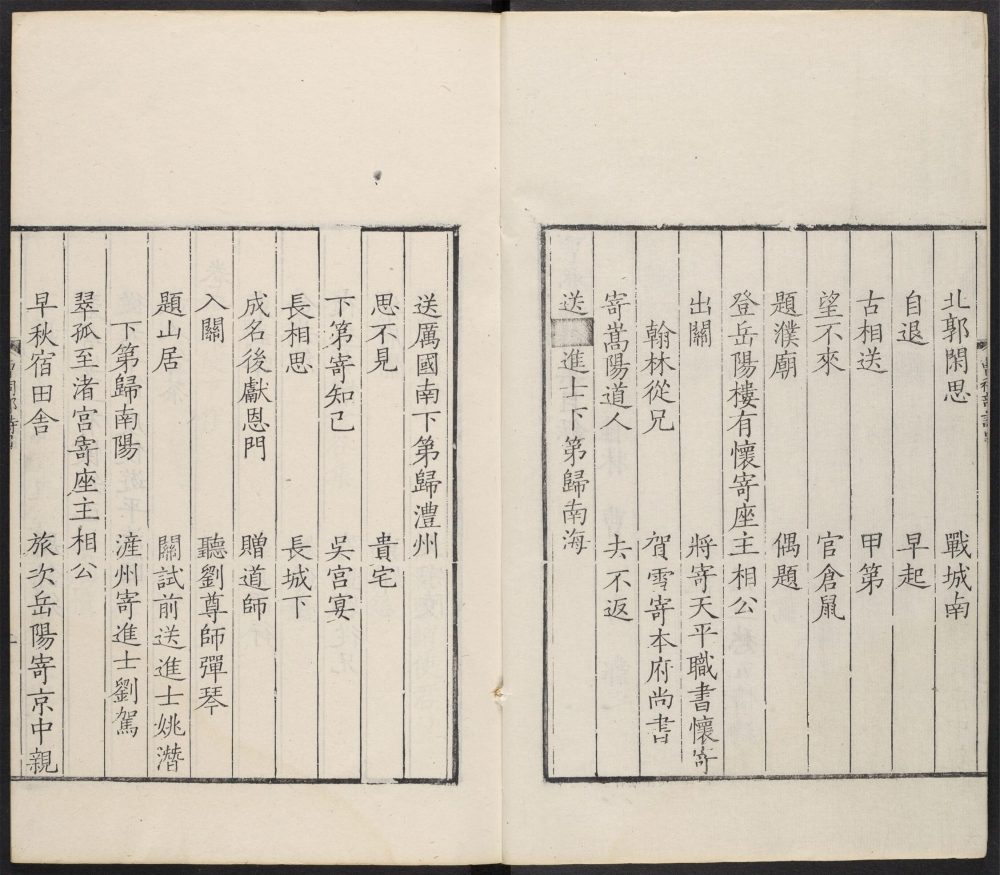 北郭閑思 戰城南
自退 早起
古相送 甲第
望不來 官倉鼠
題濮廟 偶題
登岳陽樓有懷寄座主相公
出關 將寄天平職書懷寄
翰林從兄 賀雪寄本府尚書
寄嵩陽道人 去不返
送 進士下第歸南海
送厲國南下第歸澧州
思不見 貴宅
下第寄知己 吳宮宴
長相思 長城下
成名後獻恩門 贈道師
入關 聽劉尊師彈琴
題山居 關試前送進士姚潛
下第歸南陽 滻州寄進士劉駕
翠孤至渚宮寄座主相公
早秋宿田舍 旅次岳陽寄京中親